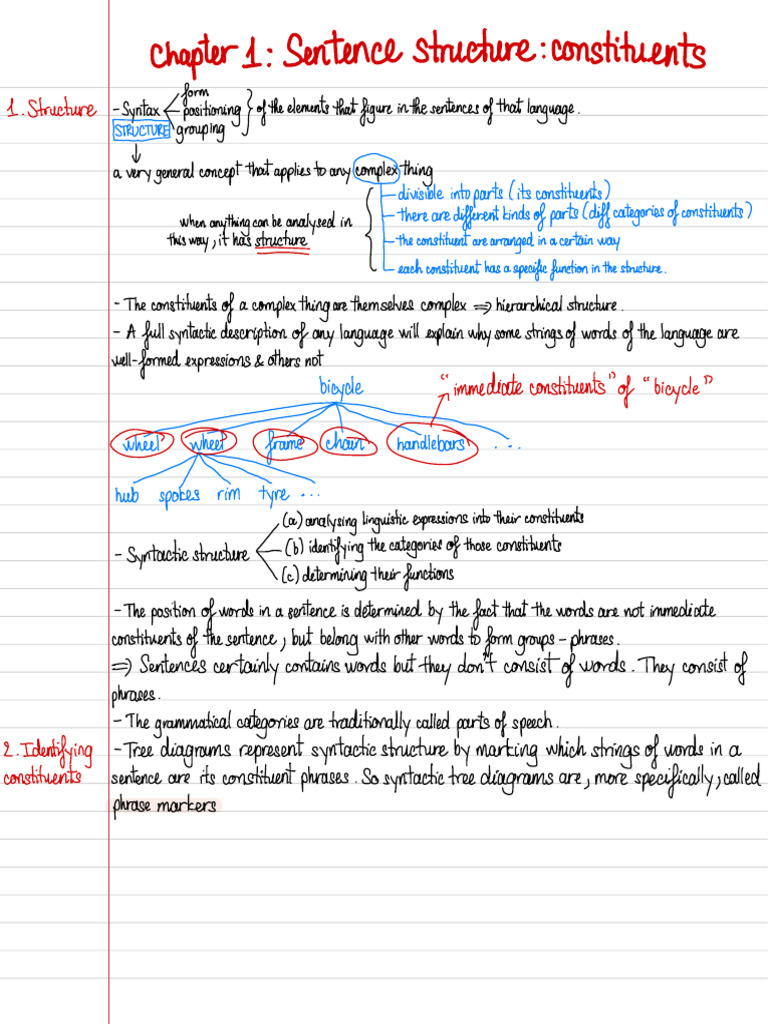 Chapter 1: Sentence structure: constituents
1. Structure
form
- Syntax positioning } of the elements that figure in the sentences of that language.
STRUCTURE grouping
a very general concept that applies to any complex thing
- divisible into parts (its constituents)
- there are different kinds of parts (diff categories of constituents)
when anything can be analysed in
this way, it has structure
- the constituent are arranged in a certain way
- each constituent has a specific function in the structure.
- The constituents of a complex thing are themselves complex ⇒ hierarchical structure.
- A full syntactic description of any language will explain why some strings of words of the language are
well-formed expressions & others not
bicycle
"immediate constituents" of "bicycle"
wheel wheel frame chain handlebars ...
hub spokes rim tyre ...
(a) analysing linguistic expressions into their constituents
- Syntactic structure (b) identifying the categories of those constituents
(c) determining their functions
- The position of words in a sentence is determined by the fact that the words are not immediate
constituents of the sentence, but belong with other words to form groups - phrases.
⇒ Sentences certainly contains words but they don't consist of words. They consist of
phrases.
- The grammatical categories are traditionally called parts of speech.
2. Identifying
constituents
- Tree diagrams represent syntactic structure by marking which strings of words in a
sentence are its constituent phrases. So syntactic tree diagrams are, more specifically, called
phrase markers